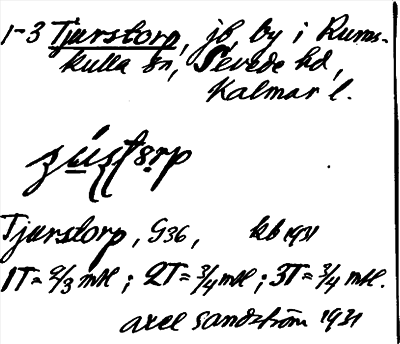 1-3 Tjurstorp, jb, by i Rums-
kulla sn, Sevede hd,
Kalmar l.
Tjurstorp, G36, kb 1931
1T = 2/3 mtl; 2T = 3/4 mtl; 3T = 3/4 mtl.
Axel Sandström 1931